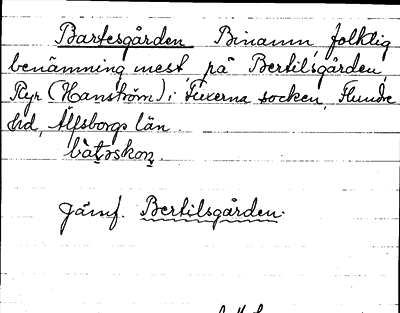 Bartesgården, Binamn, folklig
benämning mest, på Bertilsgården,
Ryr (Hanström) i Fuxerna socken, Flundre
hd, Älfsborgs län.
Jämf. Bertilsgården.